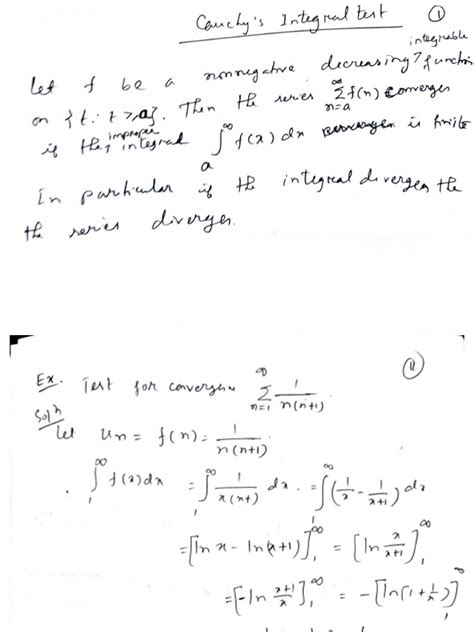 Cauchy's Integral test ①
integrable
Let f be a nonnegative decreasing function
on {t: t ≥ a}. Then the series ∑_{n=a}^∞ f(n) converges
if the improper integral ∫_a^∞ f(x) dx is finite
In particular if the integral diverges, the
the series diverges.
⑪
Ex. Test for convergence ∑_{n=1}^∞ 1/(n(n+1)).
Soln
Let u_n = f(n) = 1/(n(n+1)).
∫_1^∞ f(x)dx = ∫_1^∞ 1/(x(x+)) dx = ∫_1^∞ (1/x - 1/(x+1)) dx
= [ln x - ln(x+1)]_1^∞ = [ln x/(x+1)]_1^∞
= [-ln (x+1)/x]_1^∞ = -[ln(1+1/x)]_1^∞